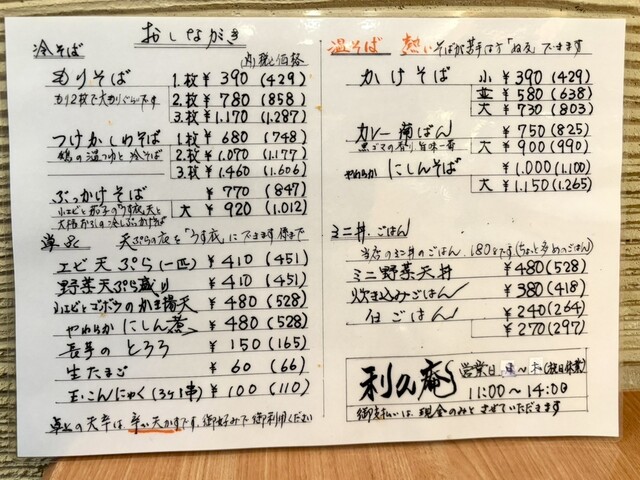 おしながき
冷そば 内税価格
もりそば 1.枚 ¥ 390 (429)
もり2枚で大もりぐらいです 2.枚 ¥ 780 (858)
3.枚 ¥ 1.170 (1.287)
つけかしわそば 1枚 ¥ 680 (748)
鶏の温つゆと冷そば 2枚 ¥ 1.070 (1.177)
3.枚 ¥ 1.460 (1.606)
ぶっかけそば ¥ 770 (847)
小エビと茄子のうす衣天と 大 ¥ 920 (1.012)
大根おろしの冷しぶっかけそば
天ぷらの衣を「うす衣」にできます
エビ天ぷら(一匹) ¥ 410 (451)
野菜天ぷら盛り ¥ 410 (451)
小エビとゴボウのかき揚天 ¥ 480 (528)
やわらかにしん煮 ¥ 480 (528)
長芋のとろろ ¥ 150 (165)
生たまご ¥ 60 (66)
玉こんにゃく(3ケ1串) ¥ 100 (110)
卓上の天辛は、辛い天かすです、御好みで御利用ください
温そば 熱いそばが苦手な方「ぬる」できます
かけそば 小 ¥ 390 (429)
並 ¥ 580 (638)
大 ¥ 730 (803)
カレー南ばん ¥ 750 (825)
黒ゴマの香り 旨味一番 大 ¥ 900 (990)
やわらかにしんそば ¥ 1.000 (1.100)
大 ¥ 1.150 (1.265)
ミニ丼.ごはん
当店のミニ丼のごはん、180gです(ちょっと多めのごはん)
ミニ野菜天丼 ¥ 480 (528)
炊き込みごはん ¥ 380 (418)
白ごはん ¥ 240 (264)
¥ 270 (297)
利久庵
営業日 月〜土(祝日休業)
11:00〜14:00
御支払いは、現金のみとさせていただきます